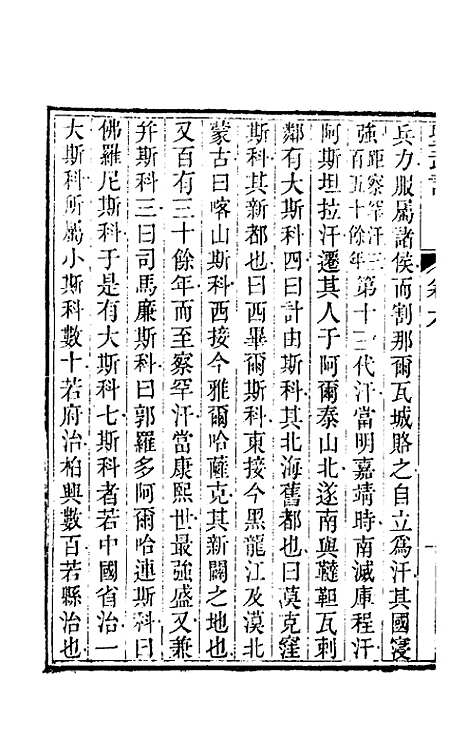 兵力服屬諸侯而割那爾瓦城賂之自立爲汗其國寖
強距察罕汗三百五十餘年第十三代汗當明嘉靖時南滅庫程汗
阿斯坦拉汗遷其人于阿爾泰山北遂南與韃靼瓦剌
鄰有大斯科四曰計由斯科其北海舊都也曰莫克窪
斯科其新都也曰西畢爾斯科東接今黑龍江及漠北
蒙古曰喀山斯科西接今雅爾哈薩克其新闢之地也
又百有三十餘年而至察罕汗當康熙世最強盛又兼
幷斯科三曰司馬廉斯科曰郭羅多阿爾哈連斯科曰
佛羅尼斯科于是有大斯科七斯科者若中國省治一
大斯科所屬小斯科數十若府治柏興數百若縣治也